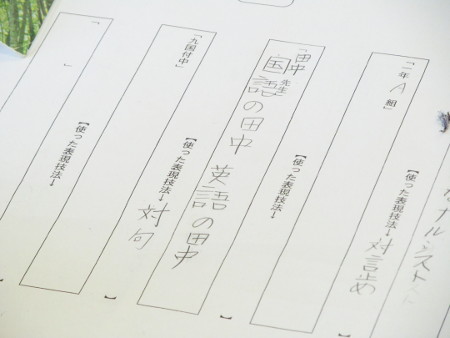 なナルシスト
「一年 A 組」 【使った表現技法→ 対言止め
「田中先生 【使った表現技法→ 】
国語の田中 英語の田中
「九国付中」 【使った表現技法→ 対句 】
「 」 【使った表現技法→ 】